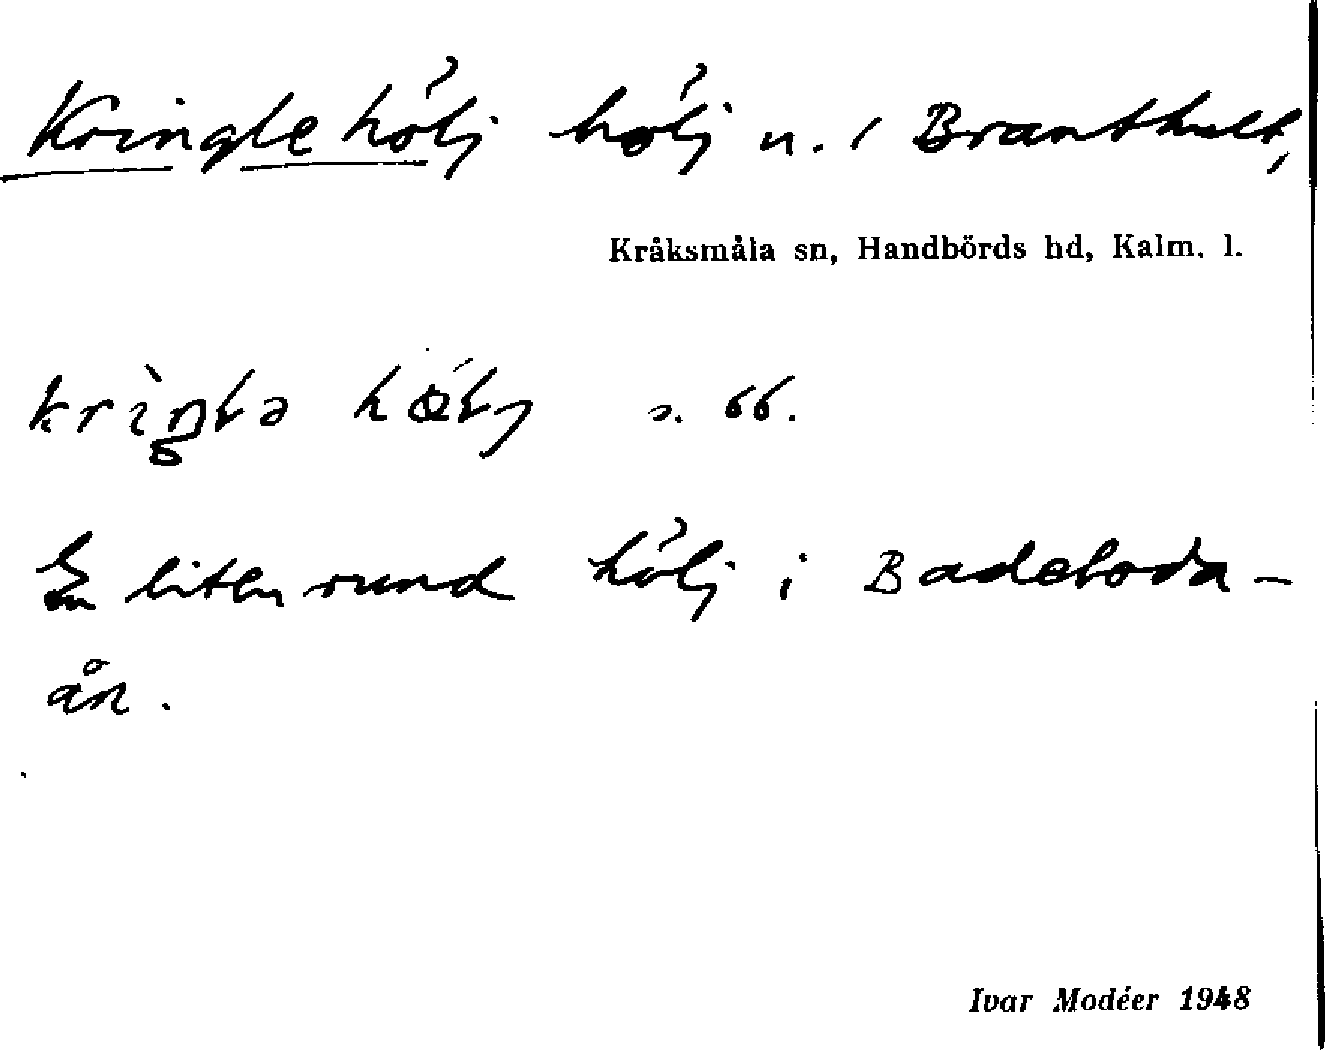 Kringlehölj hölj n. / Branthult,
Kråksmåla sn, Handbörds hd, Kalm. l.
krìŋla hølj s. 66.
En liten rund hölj i Badeboda-
ån.
Ivar Modéer 1948